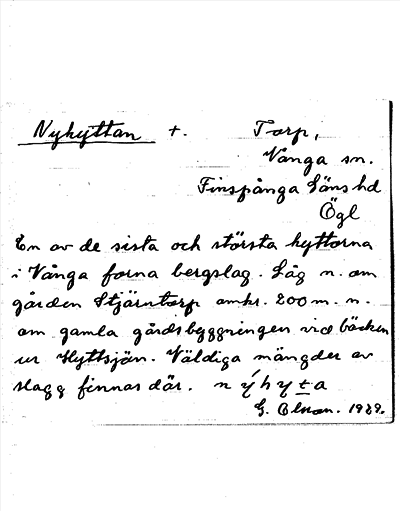 Nyhyttan +. Torp,
Vånga sn.
Finspånga läns hd
Ögl
En av de sista och största hyttorna
i Vånga forna bergslag. Låg n. om
gården Stjärntorp omkr. 200 m. n.
om gamla gårdsbyggningen vid bäcken
ur Hyttsjön. Väldiga mängder av
slagg finnas där. n ý h y t a
G. 1929.